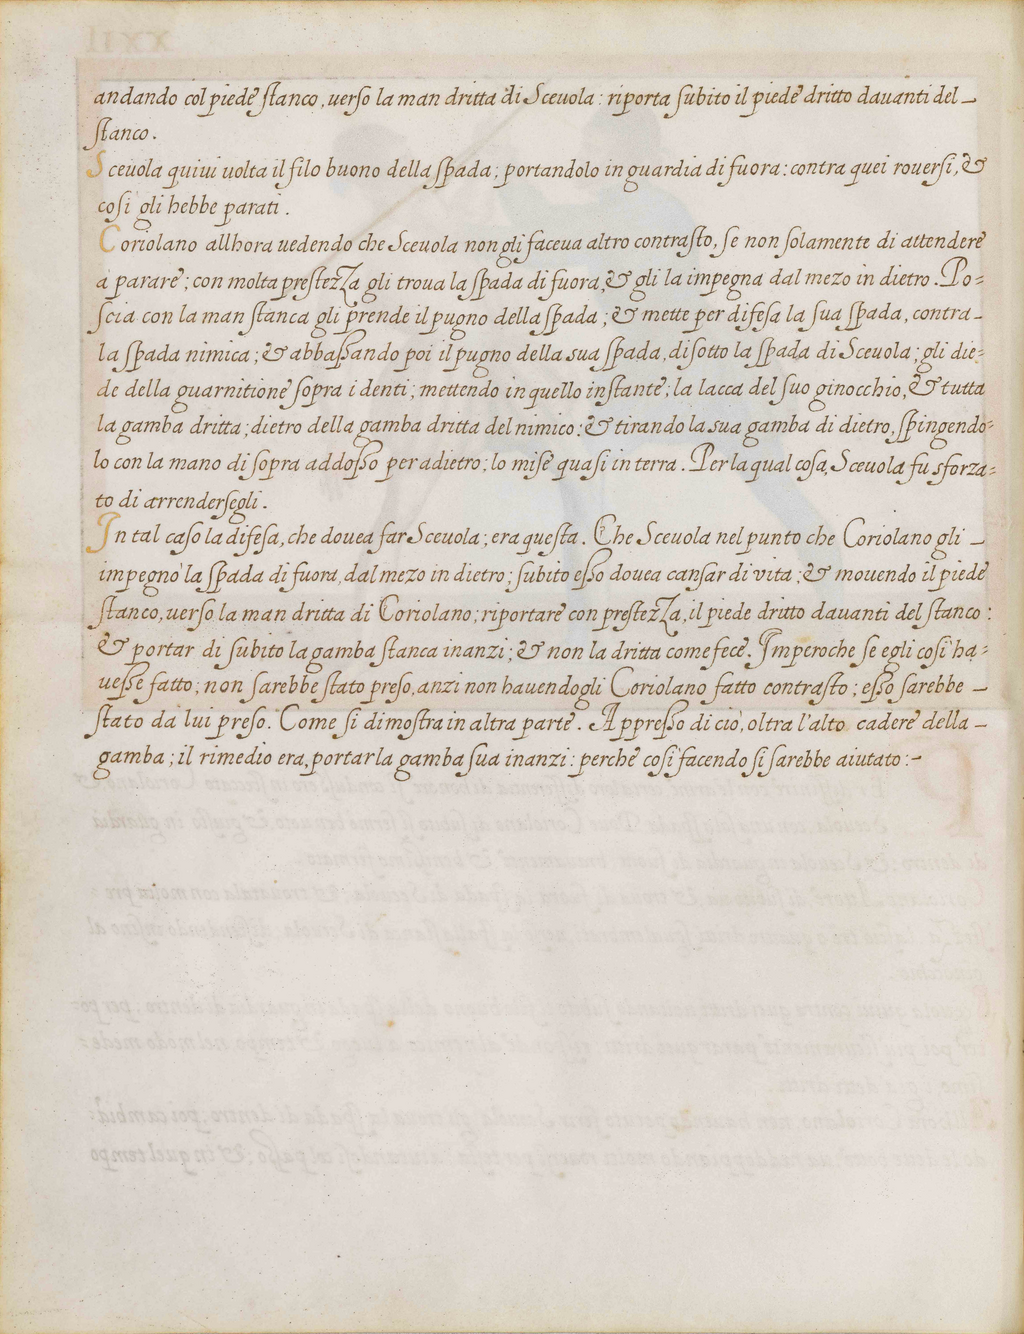 andando col piede stanco, uerso la man dritta di Sceuola: riporta subito il piede dritto dauanti del
stanco.
Sceuola quiui uolta il filo buono della spada; portandolo in guardia di fuora: contra quei rouersi, &
cosi gli hebbe parati.
Coriolano allhora uedendo che Sceuola non gli faceua altro contrasto, se non solamente di attendere
à parare; con molta prestezza gli troua la spada di fuora, & gli la impegna dal mezo in dietro. Po=
scia con la man stanca gli prende il pugno della spada; & mette per difesa la sua spada, contra
la spada nimica; & abbassando poi il pugno della sua spada, disotto la spada di Sceuola; gli die=
de della guarnitione sopra i denti; mettendo in quello instante; la lacca del suo ginocchio, & tutta
la gamba dritta; dietro della gamba dritta del nimico: & tirando la sua gamba di dietro, spingendo=
lo con la mano di sopra addosso per adietro; lo mise quasi in terra. Per la qual cosa, Sceuola fu sforza=
to di arrendersegli.
In tal caso la difesa, che douea far Sceuola; era questa. Che Sceuola nel punto che Coriolano gli
impegnò la spada di fuora, dal mezo in dietro; subito esso douea cansar di vita; & mouendo il piede
stanco, uerso la man dritta di Coriolano; riportare con prestezza, il piede dritto dauanti del stanco:
& portar di subito la gamba stanca inanzi; & non la dritta come fece. Imperoche se egli cosi ha=
uesse fatto; non sarebbe stato preso, anzi non hauendogli Coriolano fatto contrasto; esso sarebbe
stato da lui preso. Come si dimostra in altra parte. Appresso di ciò, oltra l'alto cadere della
gamba; il rimedio era, portar la gamba sua inanzi: perche cosi facendo si sarebbe aiutato:~